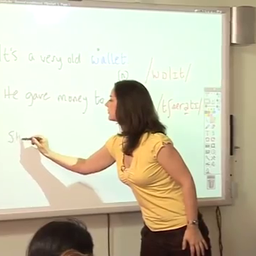 It's a very old wallet
(n) /wɒlɪt/
He gave money to
St